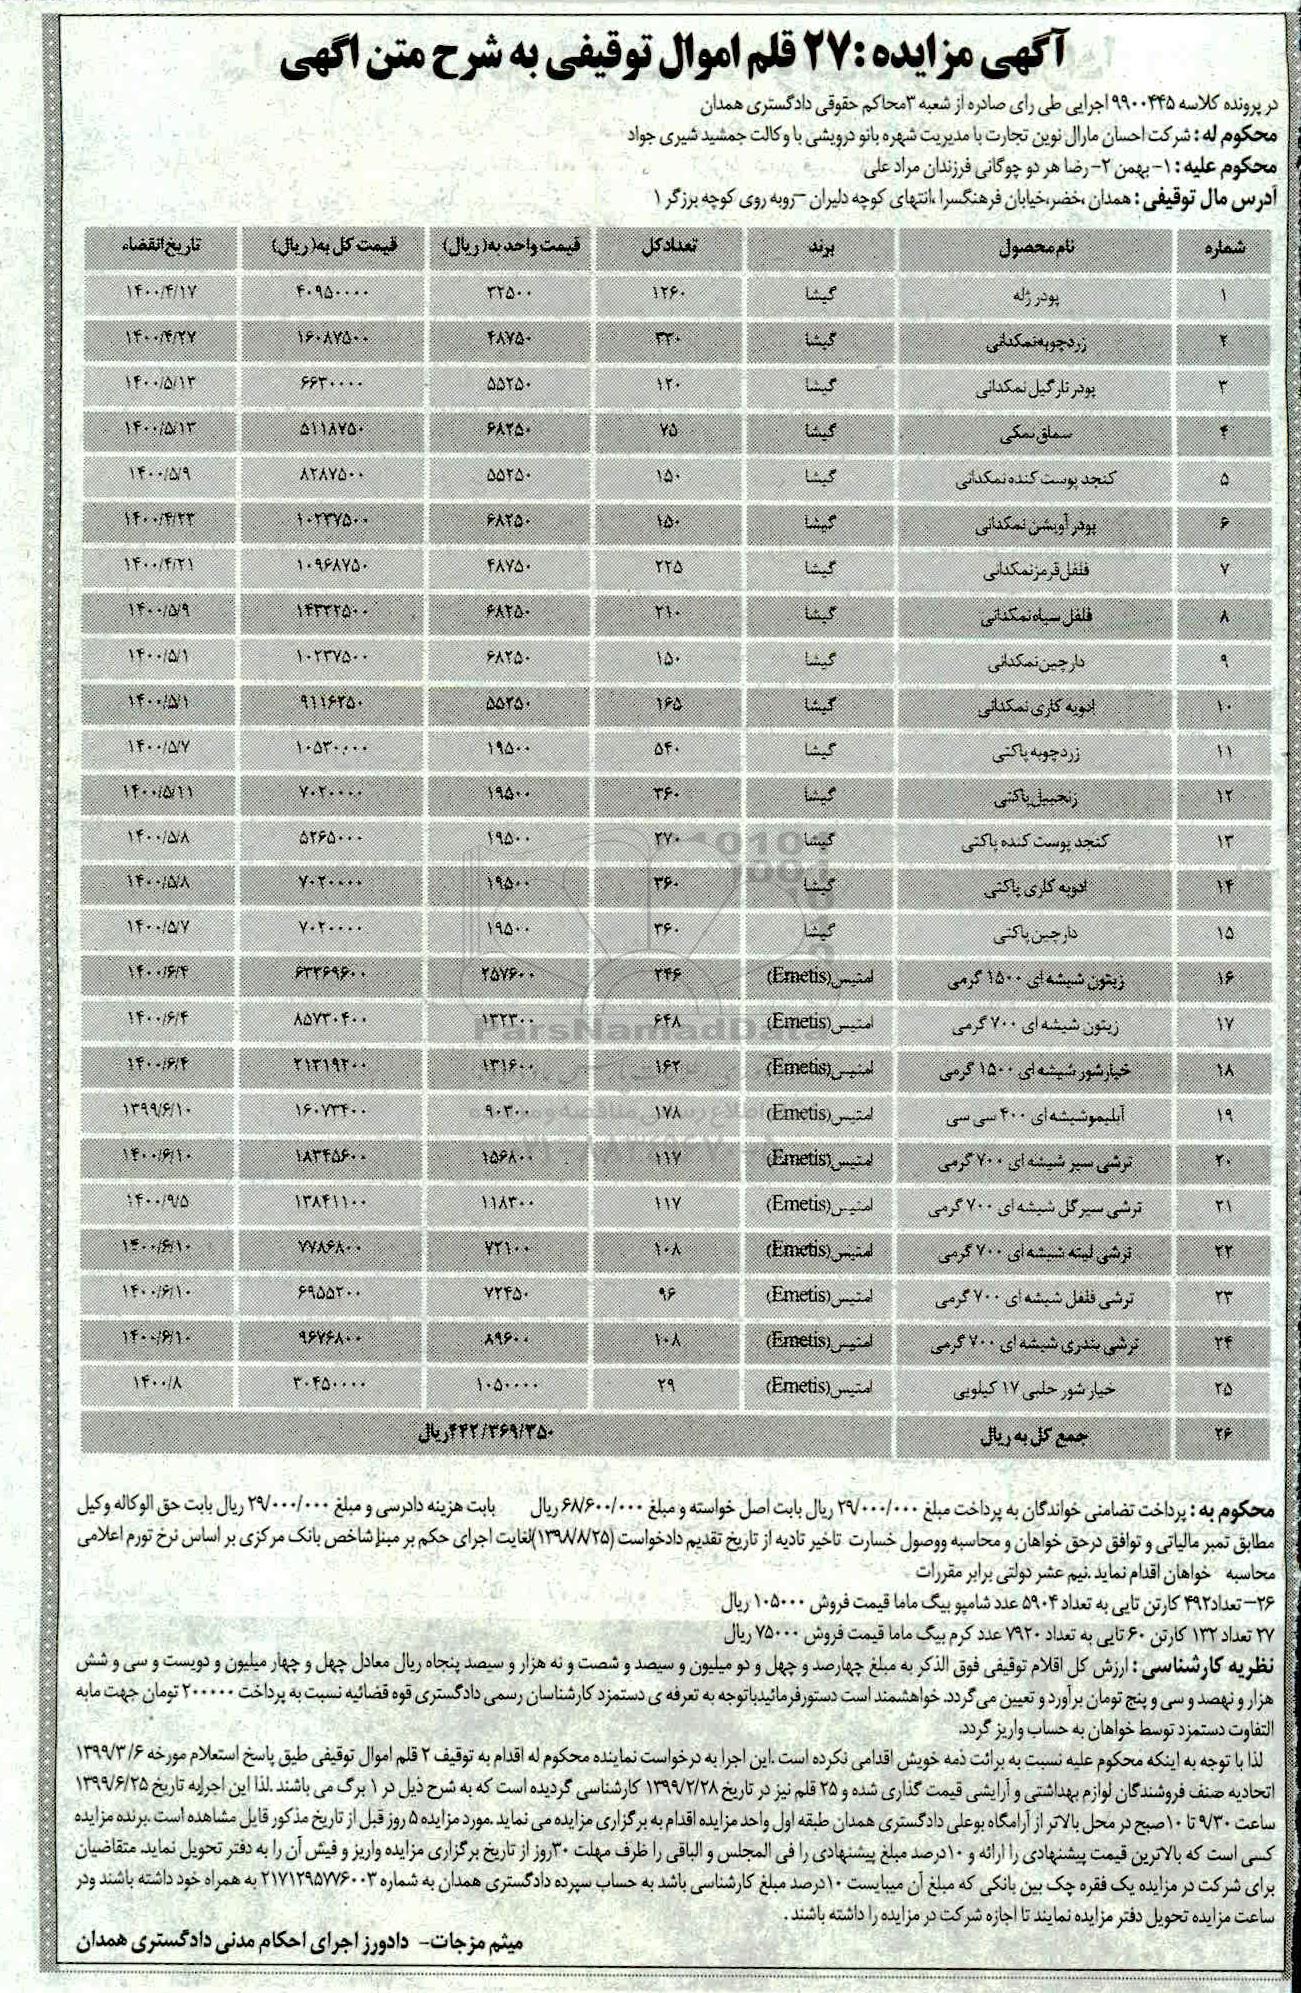 آگهی مزایده :۲۷ قلم اموال توقیفی به شرح متن آگهی
در پرونده کلاسه ۹۹۰۰۴۴۵ اجرایی طی رای صادره از شعبه ۳محاکم حقوقی دادگستری همدان
محکوم له : شرکت احسان مارال نوین تجارت با مدیریت شهره بانو درویشی با وکالت جمشید شیری جواد
محکوم علیه : ۱- بهمن ۲- رضا هر دو چوگانی فرزندان مراد علی
آدرس مال توقیفی : همدان ،خضر،خیابان فرهنگسرا ،انتهای کوچه دلیران –روبه روی کوچه برزگر ۱
شماره نام محصول برند تعدادکل قیمت واحد به( ریال) قیمت کل به( ریال) تاریخ انقضاء
۱ پودر ژله گیشا ۱۲۶۰ ۳۲۵۰۰ ۴۰۹۵۰۰۰۰ ۱۴۰۰/۴/۱۷
۲ زردچوبه نمکدانی گیشا ۳۳۰ ۴۸۷۵۰ ۱۶۰۸۷۵۰۰ ۱۴۰۰/۴/۲۷
۳ پودر نارگیل نمکدانی گیشا ۱۲۰ ۵۵۲۵۰ ۶۶۳۰۰۰۰ ۱۴۰۰/۵/۱۳
۴ سماق نمکی گیشا ۷۵ ۶۸۲۵۰ ۵۱۱۸۷۵۰ ۱۴۰۰/۵/۱۳
۵ کنجد پوست کنده نمکدانی گیشا ۱۵۰ ۵۵۲۵۰ ۸۲۸۷۵۰۰ ۱۴۰۰/۵/۹
۶ پودر آویشن نمکدانی گیشا ۱۵۰ ۶۸۲۵۰ ۱۰۲۳۷۵۰۰ ۱۴۰۰/۴/۲۳
۷ فلفل قرمز نمکدانی گیشا ۲۲۵ ۴۸۷۵۰ ۱۰۹۶۸۷۵۰ ۱۴۰۰/۴/۲۱
۸ فلفل سیاه نمکدانی گیشا ۲۱۰ ۶۸۲۵۰ ۱۴۳۳۲۵۰۰ ۱۴۰۰/۵/۹
۹ دارچین نمکدانی گیشا ۱۵۰ ۶۸۲۵۰ ۱۰۲۳۷۵۰۰ ۱۴۰۰/۵/۱
۱۰ ادویه کاری نمکدانی گیشا ۱۶۵ ۵۵۲۵۰ ۹۱۱۶۲۵۰ ۱۴۰۰/۵/۱
۱۱ زردچوبه پاکتی گیشا ۵۴۰ ۱۹۵۰۰ ۱۰۵۳۰۰۰۰ ۱۴۰۰/۵/۷
۱۲ زنجبیل پاکتی گیشا ۳۶۰ ۱۹۵۰۰ ۷۰۲۰۰۰۰ ۱۴۰۰/۵/۱۱
۱۳ کنجد پوست کنده پاکتی گیشا ۲۷۰ ۱۹۵۰۰ ۵۲۶۵۰۰۰ ۱۴۰۰/۵/۸
۱۴ ادویه کاری پاکتی گیشا ۳۶۰ ۱۹۵۰۰ ۷۰۲۰۰۰۰ ۱۴۰۰/۵/۸
۱۵ دارچین پاکتی گیشا ۳۶۰ ۱۹۵۰۰ ۷۰۲۰۰۰۰ ۱۴۰۰/۵/۷
۱۶ زیتون شیشه ای ۱۵۰۰ گرمی امتیس(Emetis) ۲۴۶ ۲۵۷۶۰۰ ۶۳۳۶۹۶۰۰ ۱۴۰۰/۶/۴
۱۷ زیتون شیشه ای ۷۰۰ گرمی امتیس(Emetis) ۶۴۸ ۱۳۲۳۰۰ ۸۵۷۳۰۴۰۰ ۱۴۰۰/۶/۴
۱۸ خیارشور شیشه ای ۱۵۰۰ گرمی امتیس(Emetis) ۱۶۲ ۱۳۱۶۰۰ ۲۱۳۱۹۲۰۰ ۱۴۰۰/۶/۴
۱۹ آبلیمو شیشه ای ۴۰۰ سی سی امتیس(Emetis) ۱۷۸ ۹۰۳۰۰ ۱۶۰۷۳۴۰۰ ۱۳۹۹/۶/۱۰
۲۰ ترشی سیر شیشه ای ۷۰۰ گرمی امتیس(Emetis) ۱۱۷ ۱۵۶۸۰۰ ۱۸۳۴۵۶۰۰ ۱۴۰۰/۶/۱۰
۲۱ ترشی سیرگل شیشه ای ۷۰۰ گرمی امتیس(Emetis) ۱۱۷ ۱۱۸۳۰۰ ۱۳۸۴۱۱۰۰ ۱۴۰۰/۹/۵
۲۲ ترشی لیته شیشه ای ۷۰۰ گرمی امتیس(Emetis) ۱۰۸ ۷۲۱۰۰ ۷۷۸۶۸۰۰ ۱۴۰۰/۶/۱۰
۲۳ ترشی فلفل شیشه ای ۷۰۰ گرمی امتیس(Emetis) ۹۶ ۷۲۴۵۰ ۶۹۵۵۲۰۰ ۱۴۰۰/۶/۱۰
۲۴ ترشی بندری شیشه ای ۷۰۰ گرمی امتیس(Emetis) ۱۰۸ ۸۹۶۰۰ ۹۶۷۶۸۰۰ ۱۴۰۰/۶/۱۰
۲۵ خیار شور حلبی ۱۷ کیلویی امتیس(Emetis) ۲۹ ۱۰۵۰۰۰۰ ۳۰۴۵۰۰۰۰ ۱۴۰۰/۸
۲۶ جمع کل به ریال ۴۴۲/۳۶۹/۳۵۰ریال
ParsNamadData
محکوم به : پرداخت تضامنی خواندگان به پرداخت مبلغ ۲۹/۰۰۰/۰۰۰ ریال بابت اصل خواسته و مبلغ ۶۸/۶۰۰/۰۰۰ ریال بابت هزینه دادرسی و مبلغ ۲۹/۰۰۰/۰۰۰ ریال بابت حق الوکاله وکیل
مطابق تمبر مالیاتی و توافق درحق خواهان و محاسبه ووصول خسارت تاخیر تادیه از تاریخ تقدیم دادخواست (۱۳۹۸/۸/۲۵)لغایت اجرای حکم بر مبنا شاخص بانک مرکزی بر اساس نرخ تورم اعلامی
محاسبه خواهان اقدام نماید .نیم عشر دولتی برابر مقررات
۲۶– تعداد۴۹۲ کارتن تایی به تعداد ۵۹۰۴ عدد شامپو بیگ ماما قیمت فروش ۱۰۵۰۰۰ ریال
۲۷ تعداد ۱۳۲ کارتن ۶۰ تایی به تعداد ۷۹۲۰ عدد کرم بیگ ماما قیمت فروش ۷۵۰۰۰ ریال
نظریه کارشناسی : ارزش کل اقلام توقیفی فوق الذکر به مبلغ چهارصد و چهل و دو میلیون و سیصد و شصت و نه هزار و سیصد پنجاه ریال معادل چهل و چهار میلیون و دویست و سی و شش
هزار و نهصد و سی و پنج تومان برآورد و تعیین می گردد. خواهشمند است دستورفرمائیدباتوجه به تعرفه ی دستمزد کارشناسان رسمی دادگستری قوه قضائیه نسبت به پرداخت ۲۰۰۰۰۰ تومان جهت مابه
التفاوت دستمزد توسط خواهان به حساب واریز گردد.
لذا با توجه به اینکه محکوم علیه نسبت به برائت ذمه خویش اقدامی نکرده است .این اجرا به درخواست نماینده محکوم له اقدام به توقیف ۲ قلم اموال توقیفی طبق پاسخ استعلام مورخه ۱۳۹۹/۳/۶
اتحادیه صنف فروشندگان لوازم بهداشتی و آرایشی قیمت گذاری شده و ۲۵ قلم نیز در تاریخ ۱۳۹۹/۲/۲۸ کارشناسی گردیده است که به شرح ذیل در ۱ برگ می باشند .لذا این اجرابه تاریخ ۱۳۹۹/۶/۲۵
ساعت ۹/۳۰ تا ۱۰صبح در محل بالاتر از آرامگاه بوعلی دادگستری همدان طبقه اول واحد مزایده اقدام به برگزاری مزایده می نماید .مورد مزایده ۵ روز قبل از تاریخ مذکور قابل مشاهده است .برنده مزایده
کسی است که بالاترین قیمت پیشنهادی را ارائه و ۱۰درصد مبلغ پیشنهادی را فی المجلس و الباقی را ظرف مهلت ۳۰روز از تاریخ برگزاری مزایده واریز و فیش آن را به دفتر تحویل نماید. متقاضیان
برای شرکت در مزایده یک فقره چک بین بانکی که مبلغ آن میبایست ۱۰درصد مبلغ کارشناسی باشد به حساب سپرده دادگستری همدان به شماره ۲۱۷۱۲۹۵۷۷۶۰۰۳ به همراه خود داشته باشند ودر
ساعت مزایده تحویل دفتر مزایده نمایند تا اجازه شرکت در مزایده را داشته باشند .
میثم مزجات– دادورز اجرای احکام مدنی دادگستری همدان